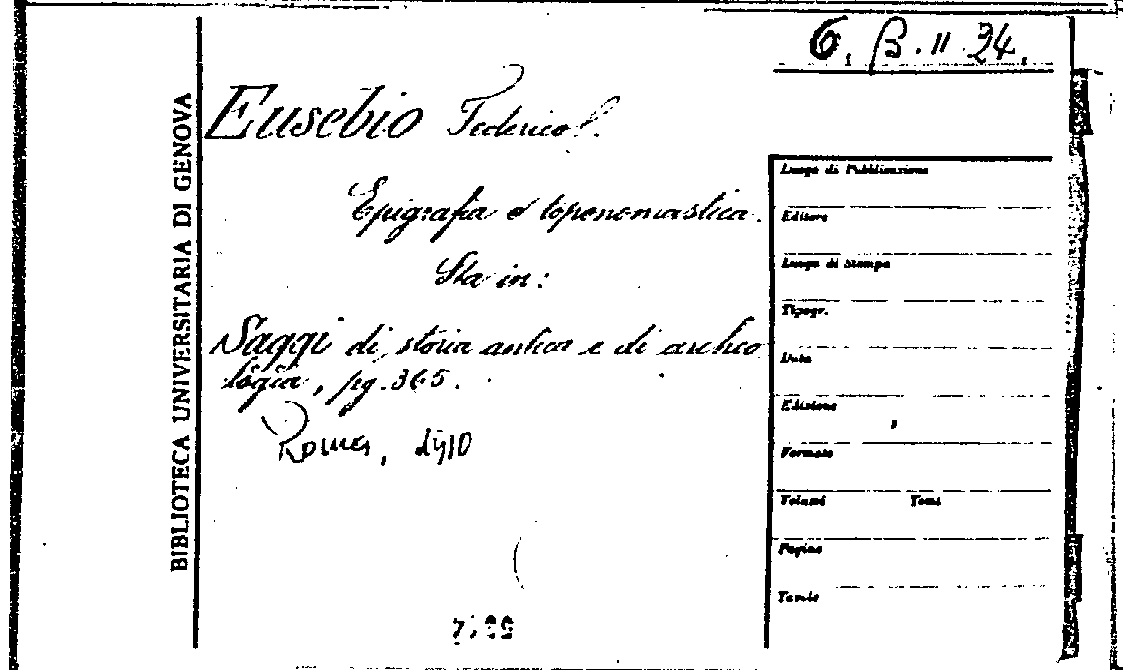 6. β. II 24.
BIBLIOTECA UNIVERSITARIA DI GENOVA
Eusebio Federico.
Epigrafia e toponomastica.
Sta in:
Saggi di storia antica e di archeo
logia, pg. 365.
Roma, 1910
Luogo di Pubblicazione
Editore
Luogo di Stampa
Tipogr.
Data
Edizione
Formato
Volumi Tomi
Pagine
Tavole